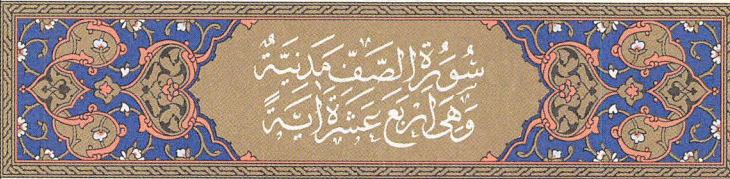 سُورَةُ الصَّفِّ مَدَنِيَّةٌ
وَهِيَ اَرْبَعَ عَشْرَةَ اٰيَةً